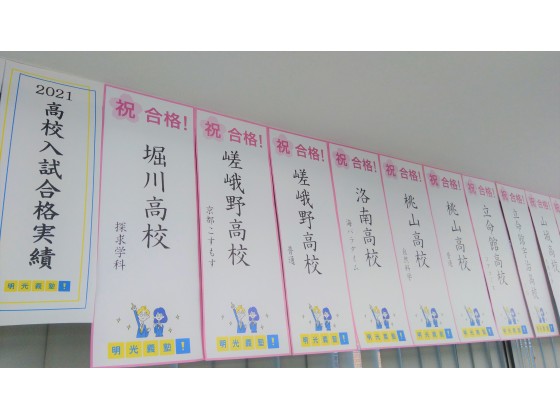 2021
高校入試合格実績
明光義塾!
祝 合格!
堀川高校
探求学科
明光義塾!
祝 合格!
嵯峨野高校
京都こすもす
明光義塾!
祝 合格!
嵯峨野高校
普通
明光義塾!
祝 合格!
洛南高校
海パラダイム
明光義塾!
祝 合格!
桃山高校
自然科学
明光義塾!
祝 合格!
桃山高校
普通
明光義塾!
祝 合格!
立命館高校
明光義塾!
祝 合格!
立命館宇治高校
明光義塾!
祝 合格!
山城高校
明光義塾